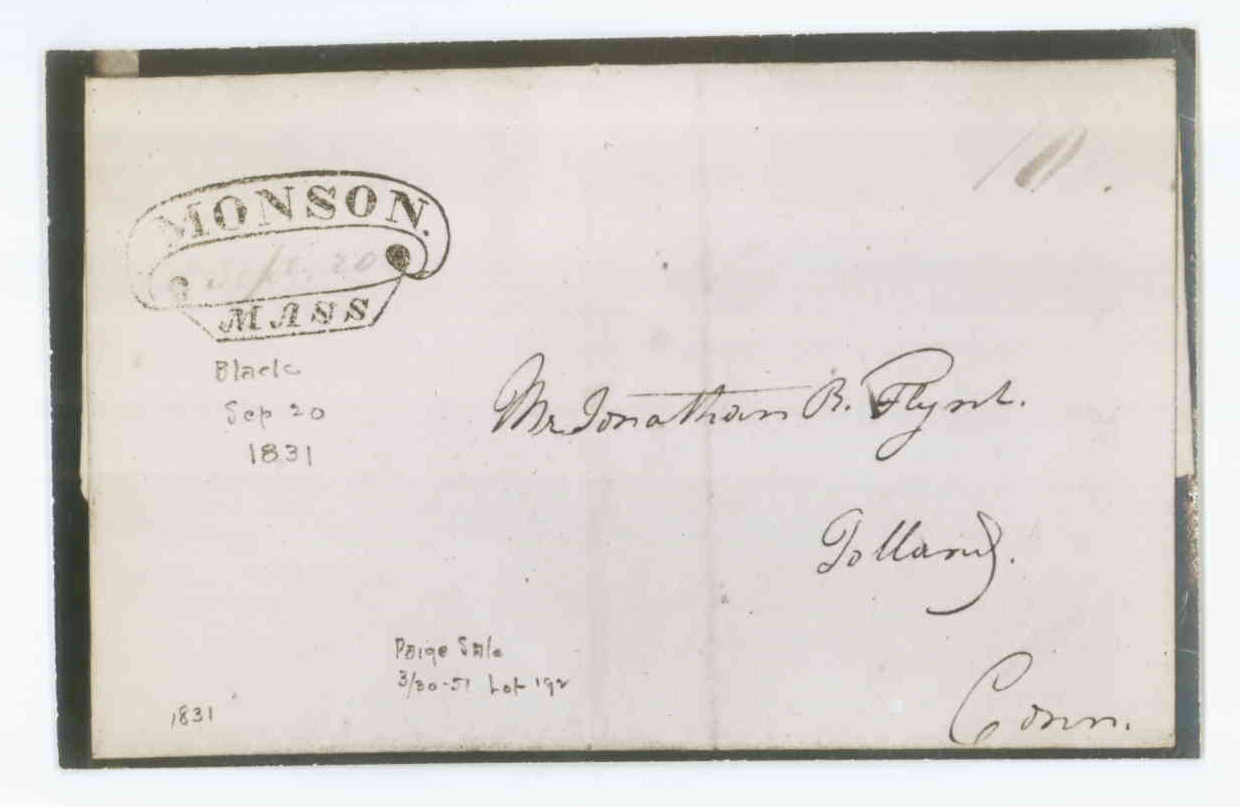 10.
MONSON.
Sept. 20
MASS
Black
Sep 20
1831
Mr Jonathan B. Flynt.
Tolland.
Conn.
Paige Sale
3/30-51 Lot 192
1831